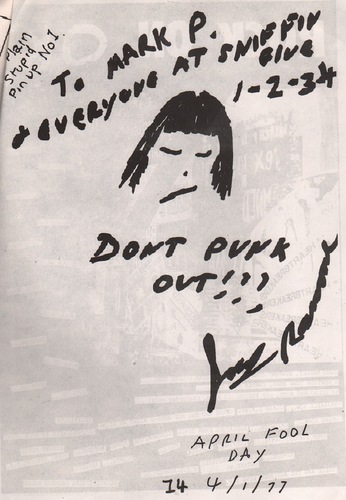 Plain
Stupid
Pin up No1.
To MARK P.
& EVERYONE AT SNIFFIN
GLUE
1-2-3-4
DONT PUNK
OUT!!!
Joey Ramone
APRIL FOOL
DAY
14 4/1/77